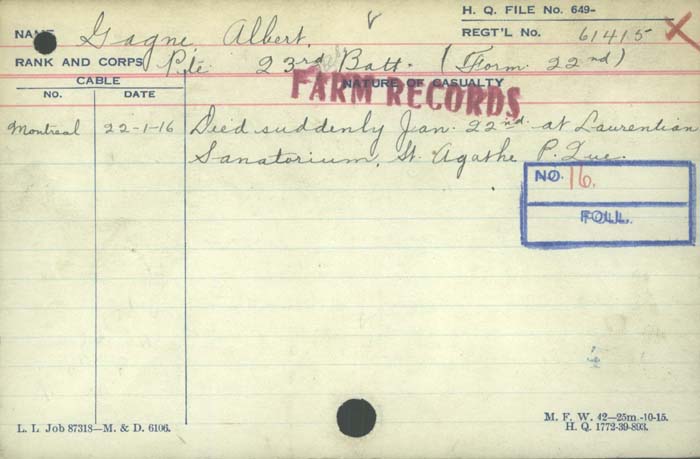 H. Q. FILE No. 649-
NAME Gagne, Albert.
REGT'L No. 61415
RANK AND CORPS Pte. 23rd Batt. (Form. 22nd)
CABLE
NATURE OF CASUALTY
FARM RECORDS
NO. DATE
Montreal 22-1-16 Deid suddenly Jan. 22nd. at Laurentian
Sanatorium, St. Agathe P. Que.
NO. 16.
FOLL.
L. L. Job 87318—M. & D. 6106.
M. F. W. 42—25m.-10-15.
H. Q. 1772-39-893.